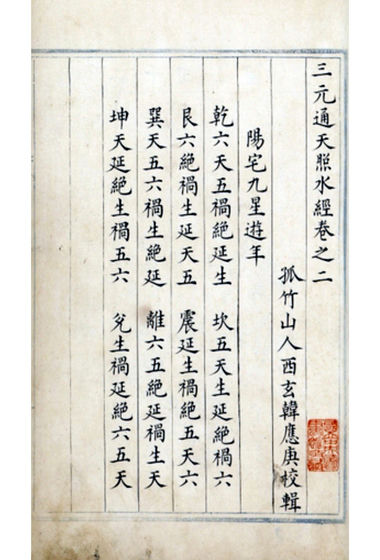 三元通天照水經卷之二
孤竹山人西玄韓應庚校輯
陽宅九星遊年
乾六天五禍絕延生 坎五天生延絕禍六
艮六絕禍生延天五 震延生禍絕五天六
巽天五六禍生絕延 離六五絕延禍生天
坤天延絕生禍五六 兌生禍延絕六五天